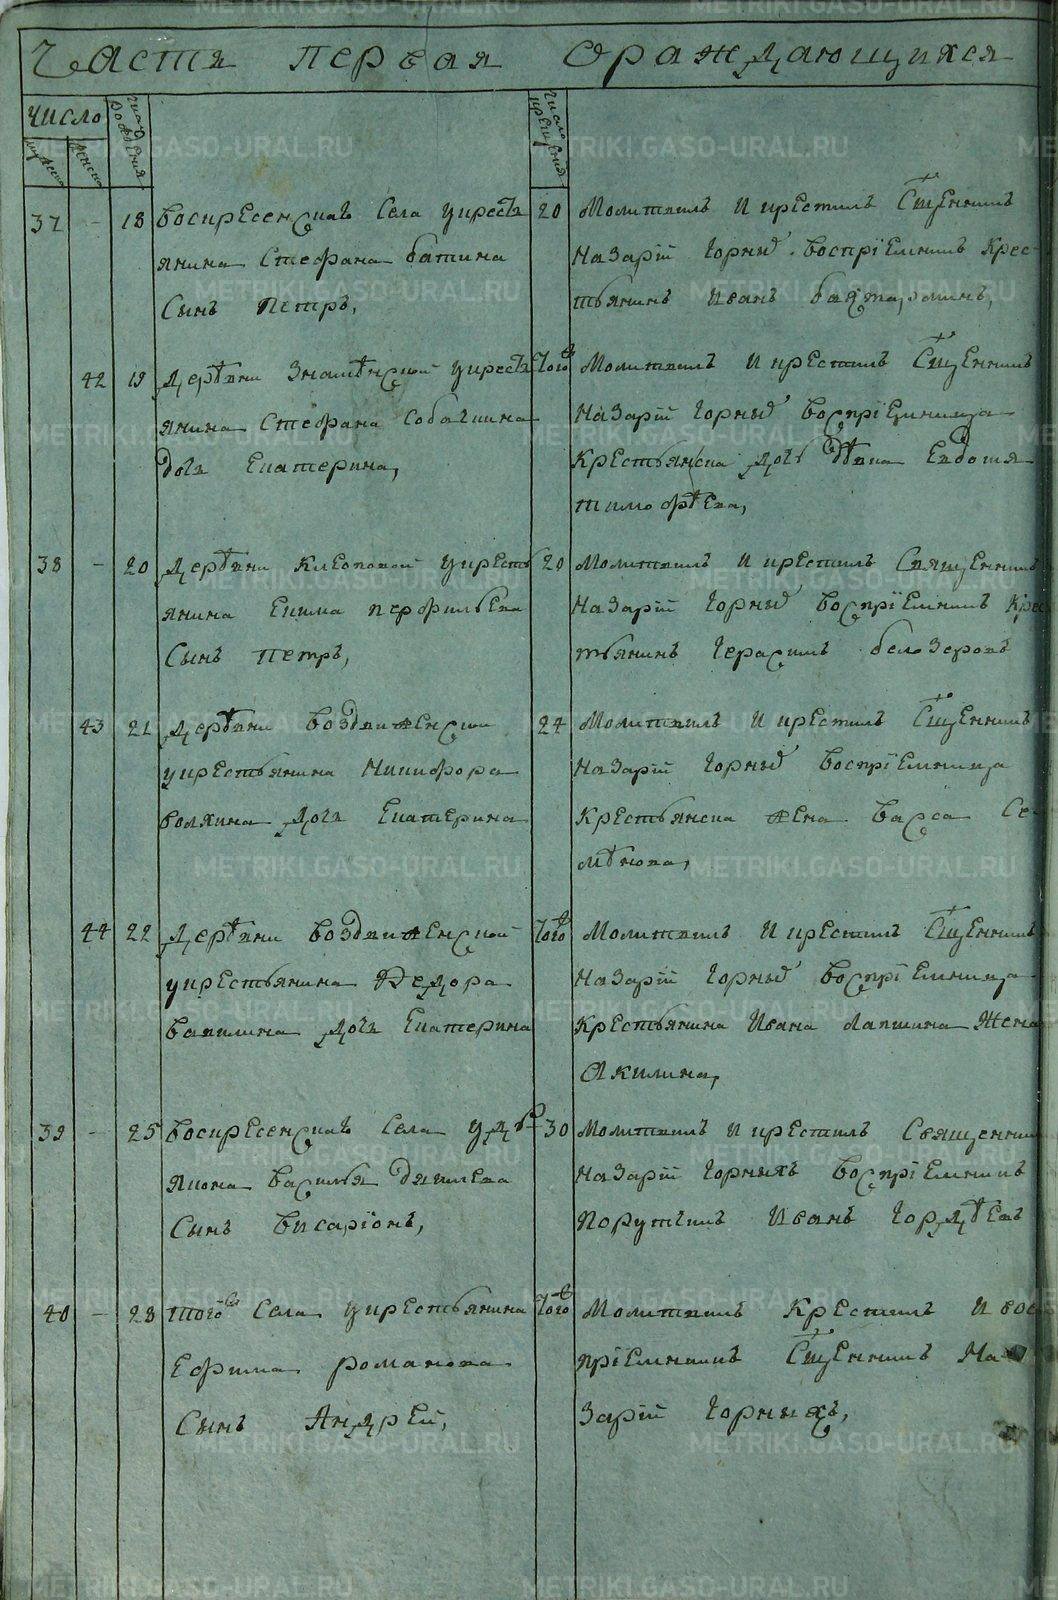 Часть первая о раждающихся
число
мужска
женска
число рождения
число крещения
37 - 18 Воскресенскаго Села укресть
янина Стефана батина
Сынъ Петръ,
20 Молитвилъ И крестилъ Сщенникъ
Назарій Горныхъ Воспріемникъ Крес
тьянинъ Иванъ
42 19 Деревни Знаменской укресть
янина Стефана Собакина
дочь Екатерина,
Того Молитвилъ И крестилъ Сщенникъ
Назарій Горныхъ Воспріемница
Крестьянска дочь девка Евдокия
тимофеева,
38 - 20 Деревни Клеопиной укресть
янина Екима перфильева
Сынъ петръ,
20 Молитвилъ И крестилъ Священникъ
Назарій Горныхъ Воспріемникъ Крес
тьянинъ Герасимъ белозеровъ
43 21 Деревни Воздвиженской
укрестьянина Никифора
Дочь Екатерина
24 Молитвилъ И крестилъ Сщенникъ
Назарій Горныхъ Воспріемница
Крестьянска жена Васса Се-
мѣнова,
44 22 Деревни Воздвиженской
укрестьянина Федора
Вавилина Дочь Екатерина
Того Молитвилъ И крестилъ Сщенникъ
Назарій Горныхъ Воспріемница
Крестьянина Ивана Лапшина Жена
Акилина,
39 - 25 Воскресенскаго Села удь
якона Василья
Сынъ Висаріонъ,
30 Молитвилъ И крестилъ Священникъ
Назарій Горныхъ Воспріемникъ
Порутчикъ Иванъ Гордѣевъ
40 - 28 того Села укрестьянина
Ефима романова
Сынъ Андрей,
Того Молитвилъ Крестилъ И вос
пріемникъ Сщенникъ На
зарій Горныхъ,